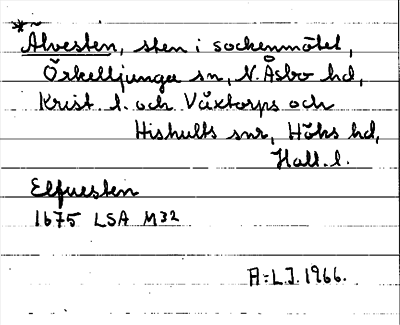 *Älvesten, sten i sockenmötet,
Örkelljunga sn, N. Åsbo hd,
Krist. l. och Våxtorps och
Hishults snr, Höks hd,
Hall. l.
Elfuesten
1675 LSA M32
A:LJ. 1966.